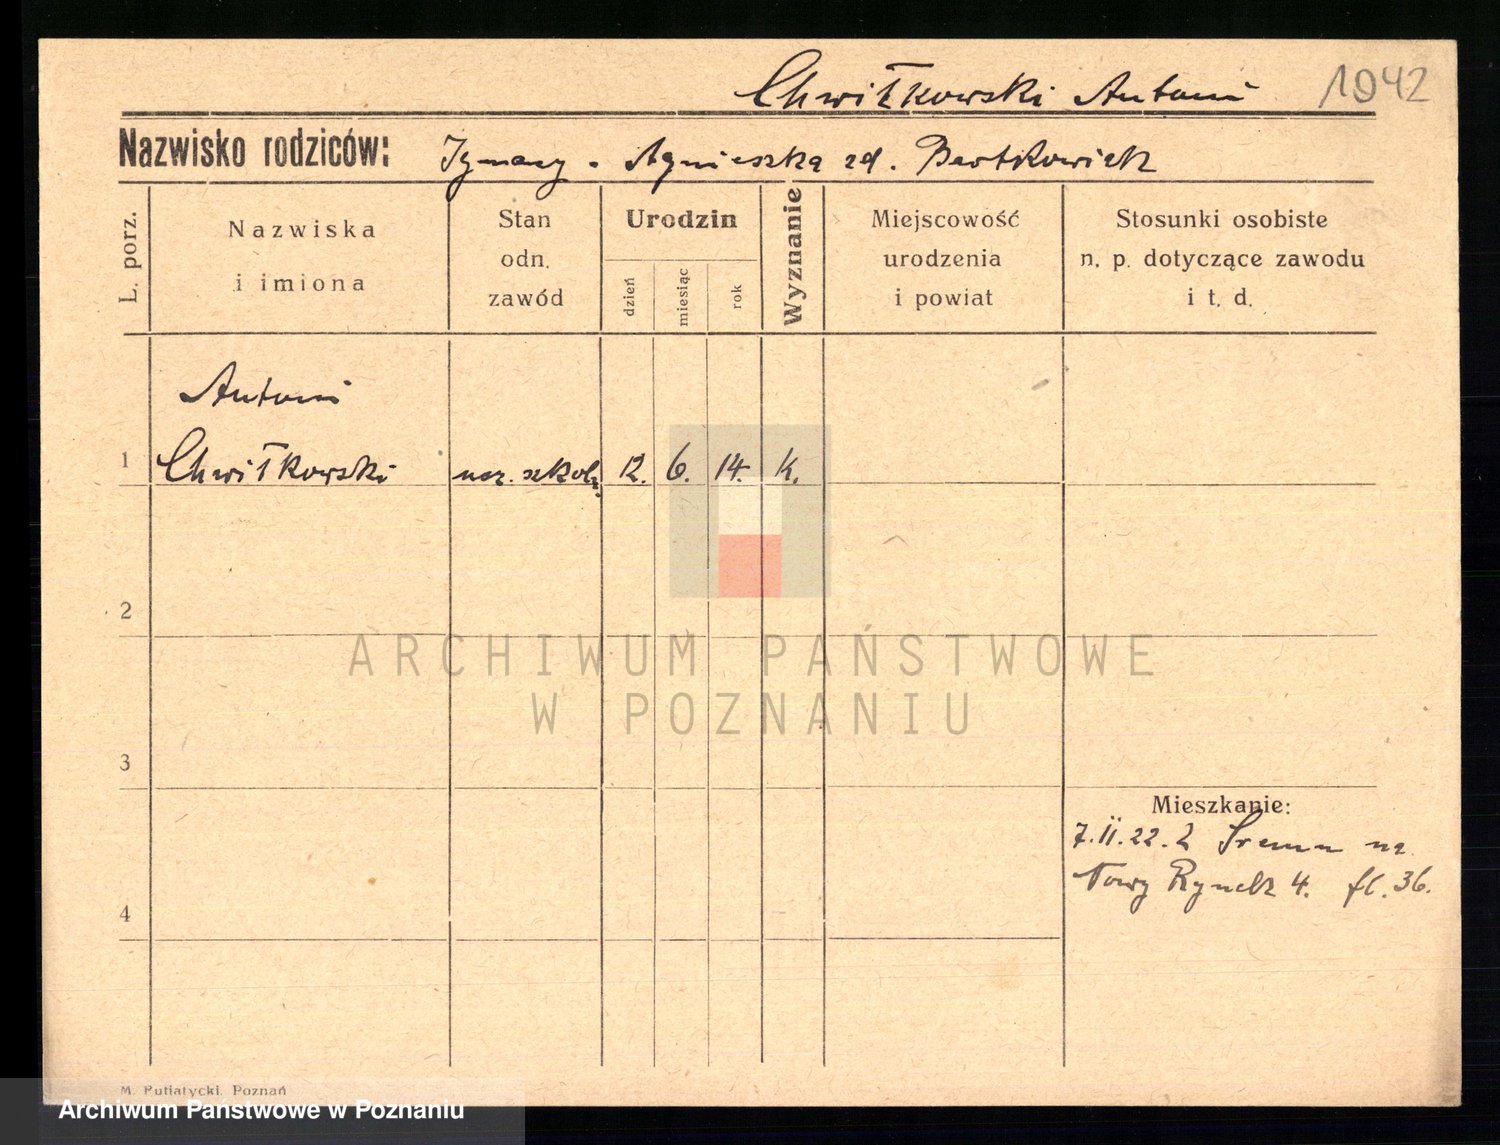 Chwiłkowski Antoni 1942
Nazwisko rodziców: Ignacy - Agnieszka zd. Bartkowiak
L. porz.
Nazwiska
i imiona
Stan
odn.
zawód
Urodzin
dzień
miesiąc
rok
Wyznanie
Miejscowość
urodzenia
i powiat
Stosunki osobiste
n. p. dotyczące zawodu
i t. d.
Antoni
1 Chwiłkowski ucz. szkoln. 12. 6. 14. k.
2
ARCHIWUM PAŃSTWOWE
W POZNANIU
3
Mieszkanie:
7.II.22. z Śremu na
Nowy Rynek 4. fl. 36.
4
M. Putiatycki, Poznań
Archiwum Państwowe w Poznaniu